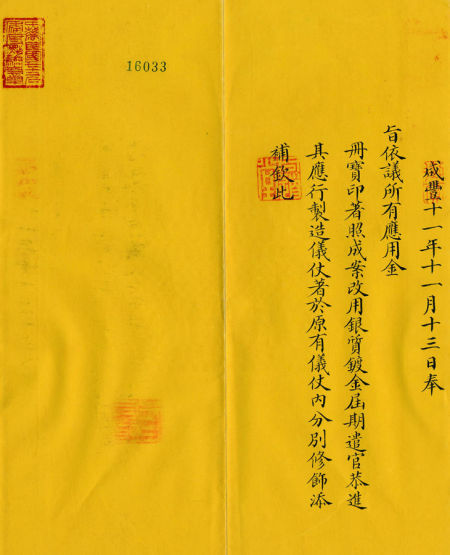 咸豐十一年十一月十三日奉
旨依議所有應用金
冊寶印著照成案改用銀質鍍金屆期遣官恭進
其應行製造儀仗著於原有儀仗內分別修飾添
補欽此
16033